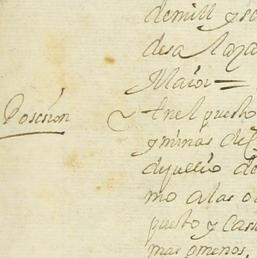 de mill y se
desa Caza
Maior
Posesion
En el puesto
y minas de
de julio de
mo a las o
puesto y Casa
mas omenos,